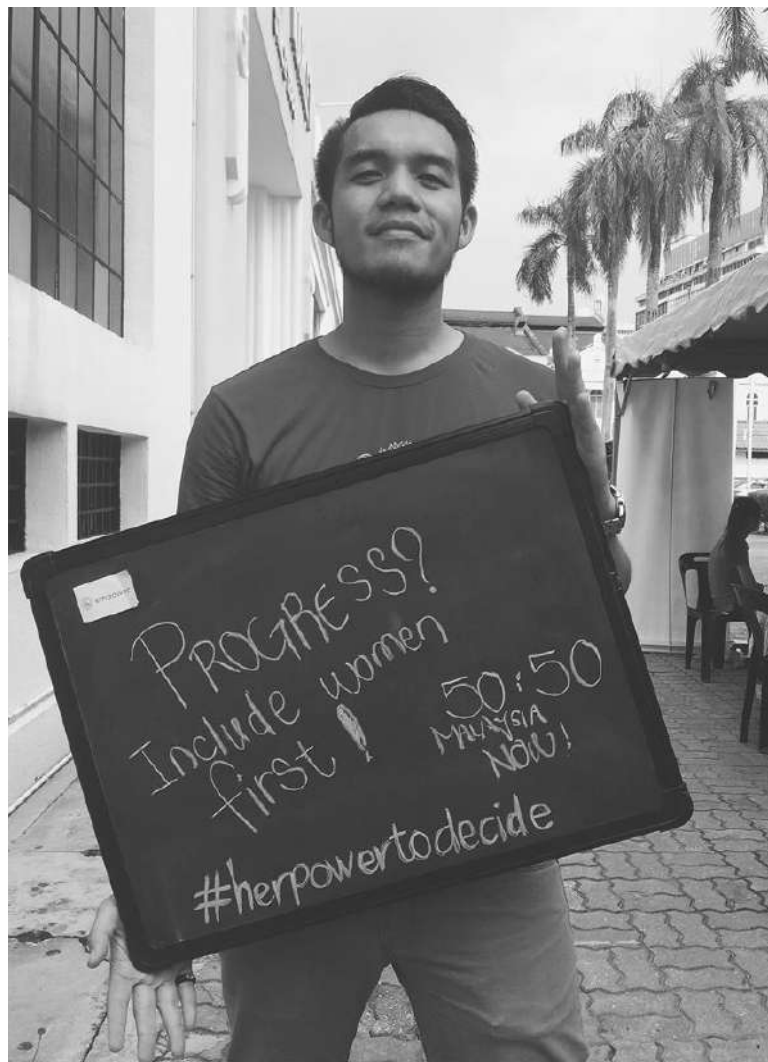 empower
PROGRESS?
Include women
first!
50:50
MALAYSIA
NOW!
#herpowertodecide